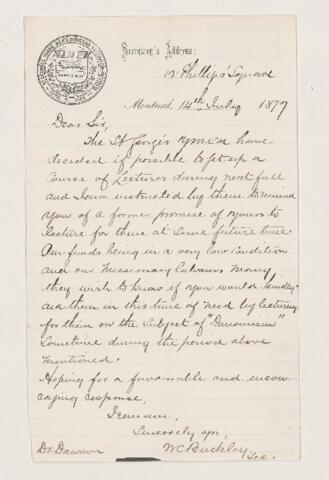 Secretary's Address:
12 Phillip's Square
Montreal, 14th July 1877
Dear Sir,
The St George's YMCA have
decided if possible to get up a
Course of Lectures during next fall
and I am instructed by them to remind
you of a former promise of yours to
lecture for them at some future time.
Our funds being in a very low condition
and our Missionary Labours many
they wish to know if you would kindly
aid them in this time of need by lecturing
for them on the subject of "Darwinism"
sometime during the period above
mentioned.
Hoping for a favourable and encou-
raging response,
I remain,
Sincerely yrs,
WC Buckley
Sec.
Dr Dawson